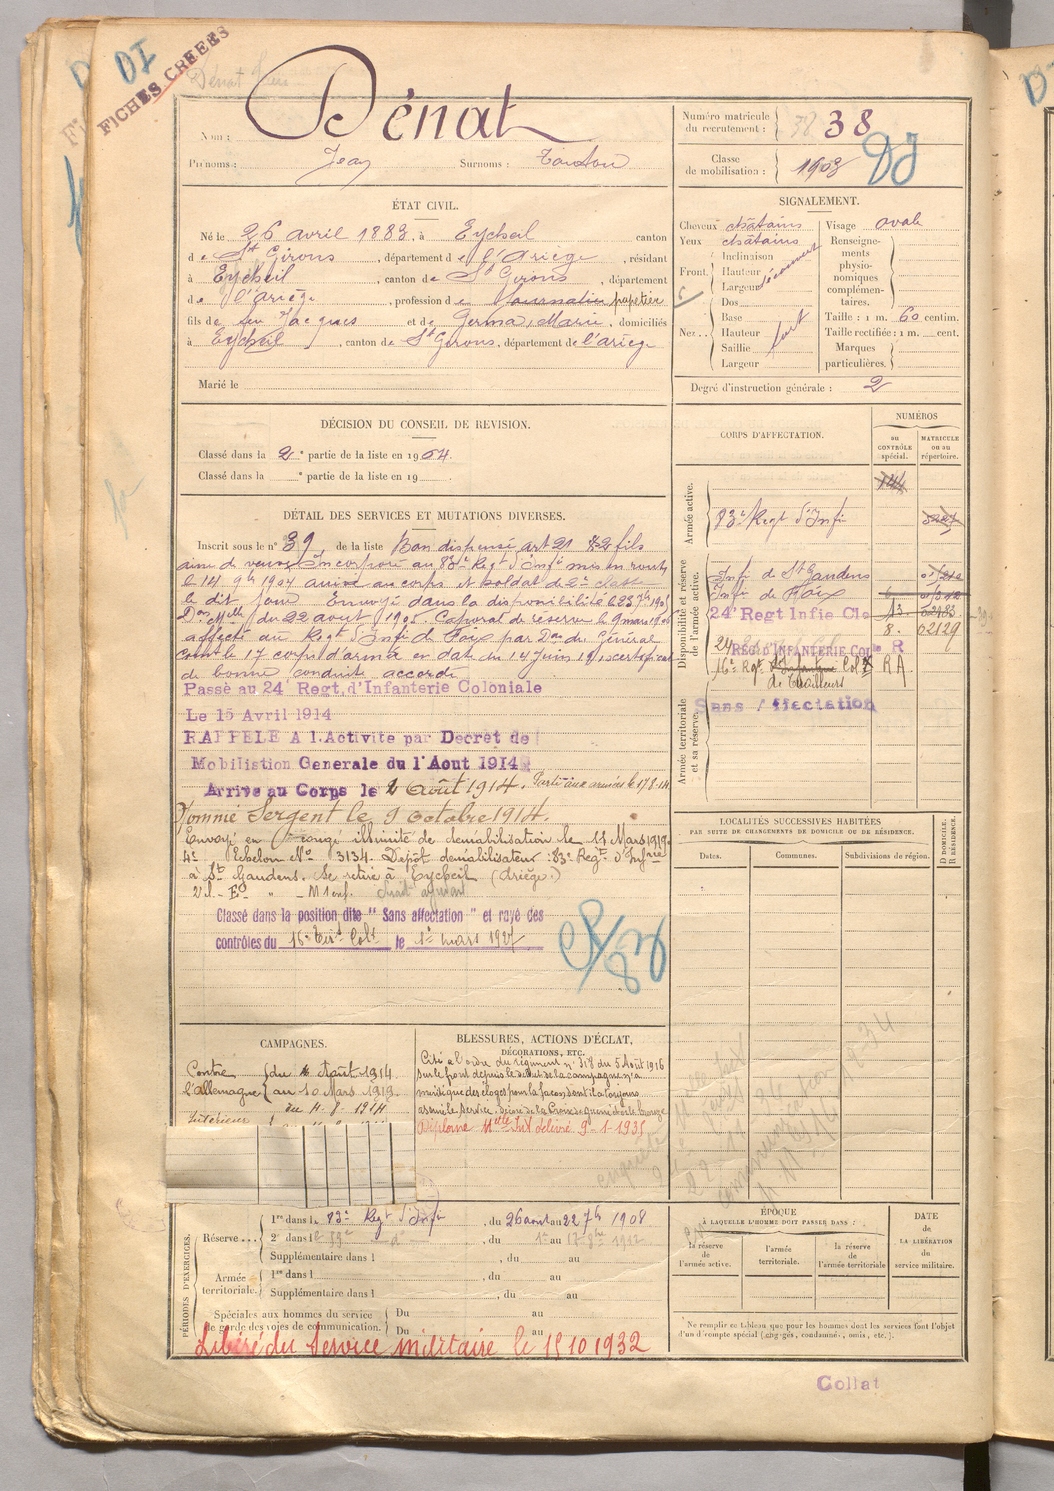 DI
FICHES CREEES
Nom : Dénat
Prénoms : Jean Surnoms : Touton
Numéro matricule du recrutement : 38 38
Classe de mobilisation : 1903
DJ
ÉTAT CIVIL.
Né le 26 avril 1883, à Eycheil canton
de St Girons, département de l'Ariège, résidant
à Eycheil, canton de St Girons, département
de l'Ariège, profession de Journalier papetier
fils de feu Jacques et de Germa, Marie, domiciliés
à Eycheil, canton de St Girons, département de l'ariège
Marié le
SIGNALEMENT.
Cheveux châtains
Yeux châtains
Front Inclinaison
Hauteur découvert
Largeur
Nez Dos
Base
Hauteur fort
Saillie
Largeur
Visage ovale
Renseignements physionomiques complémentaires.
Taille : 1 m. 60 centim.
Taille rectifiée : 1 m. cent.
Marques particulières.
Degré d'instruction générale : 2
DÉCISION DU CONSEIL DE REVISION.
Classé dans la 2e partie de la liste en 1904.
Classé dans la e partie de la liste en 19
DÉTAIL DES SERVICES ET MUTATIONS DIVERSES.
Inscrit sous le n° 39 de la liste Bon dispensé art 21 § 2 fils
ainé de veuve Incorporé au 83e Regt d'Infie mis en route
le 14 9bre 1904 arrivé au corps et soldat de 2e classe
le dit jour Envoyé dans la disponibilité le 23 7bre 1905
Don Mlle du 22 aout 1905. Caporal de réserve le 9 mars 1906
affecté au Regt d'Infie de Foix par Don du Général
comt le 17 corps d'armée en date du 14 Juin 19 certificat
de bonne conduite accordé
Passé au 24e Regt, d'Infanterie Coloniale
Le 15 Avril 1914
RAPPELE A l'Activite par Decret de
Mobilistion Generale du 1'Aout 1914
Arrive au Corps le 2 Août 1914. Parti aux armées le 17 8 14
Nommé Sergent le 9 octobre 1914.
Envoyé en congé illimité de démobilisation le 11 Mars 1919.
4e Echelon No 3134. Dépôt démobilisateur : 83e Regt d'Infrie
à St Gaudens. Se retire à Eycheil (Ariège.)
Classé dans la position dite " Sans affectation " et rayé des
contrôles du 16e Tirt Colx le 1er mars 1927
CORPS D'AFFECTATION.
NUMÉROS
au CONTRÔLE spécial.
MATRICULE ou au répertoire.
Armée active.
83e Regt d'Infie
Disponibilité et réserve de l'armée active.
Infie de St Gaudens
Infie de Foix
24e Regt Infie Cle 13. 02483
8. 02129
24 REGt D'INFANTERIE Cole R
16e Regt d'Infanterie Colx RA
de Tirailleurs
Armée territoriale et sa réserve.
Sans Affectation
LOCALITÉS SUCCESSIVES HABITÉES
PAR SUITE DE CHANGEMENTS DE DOMICILE OU DE RÉSIDENCE.
Dates. Communes. Subdivisions de région.
D DOMICILE. R RÉSIDENCE.
CAMPAGNES.
Contre l'allemagne du 2 Août 1914
au 10 Mars 1919
Intérieur du 4-8-1914
BLESSURES, ACTIONS D'ÉCLAT,
DÉCORATIONS, ETC.
Cité à l'ordre du régiment n° 318 du 5 Août 1916
Sur le front depuis le début de la campagne n'a
mérité que des éloges pour la façon dont il a toujours
assuré le service, décoré de la Croix de guerre étoile bronze
Diplôme délivré 9-1-1935
PÉRIODES D'EXERCICES.
Réserve... 1re dans le 83e Regt d'Infie, du 26 aout au 22 7bre 1908
2e dans le 59e d°, du 1er au 17 8bre 1912
Supplémentaire dans l , du au
Armée territoriale. 1re dans l , du au
Supplémentaire dans l , du au
Spéciales aux hommes du service de garde des voies de communication. Du au
Du au
Libéré du Service militaire le 15 10 1932
ÉPOQUE
A LAQUELLE L'HOMME DOIT PASSER DANS :
la réserve de l'armée active.
l'armée territoriale.
la réserve de l'armée territoriale
DATE de LA LIBÉRATION du service militaire.
Ne remplir ce tableau que pour les hommes dont les services font l'objet d'un décompte spécial (engagés, condamnés, omis, etc.).
Collat